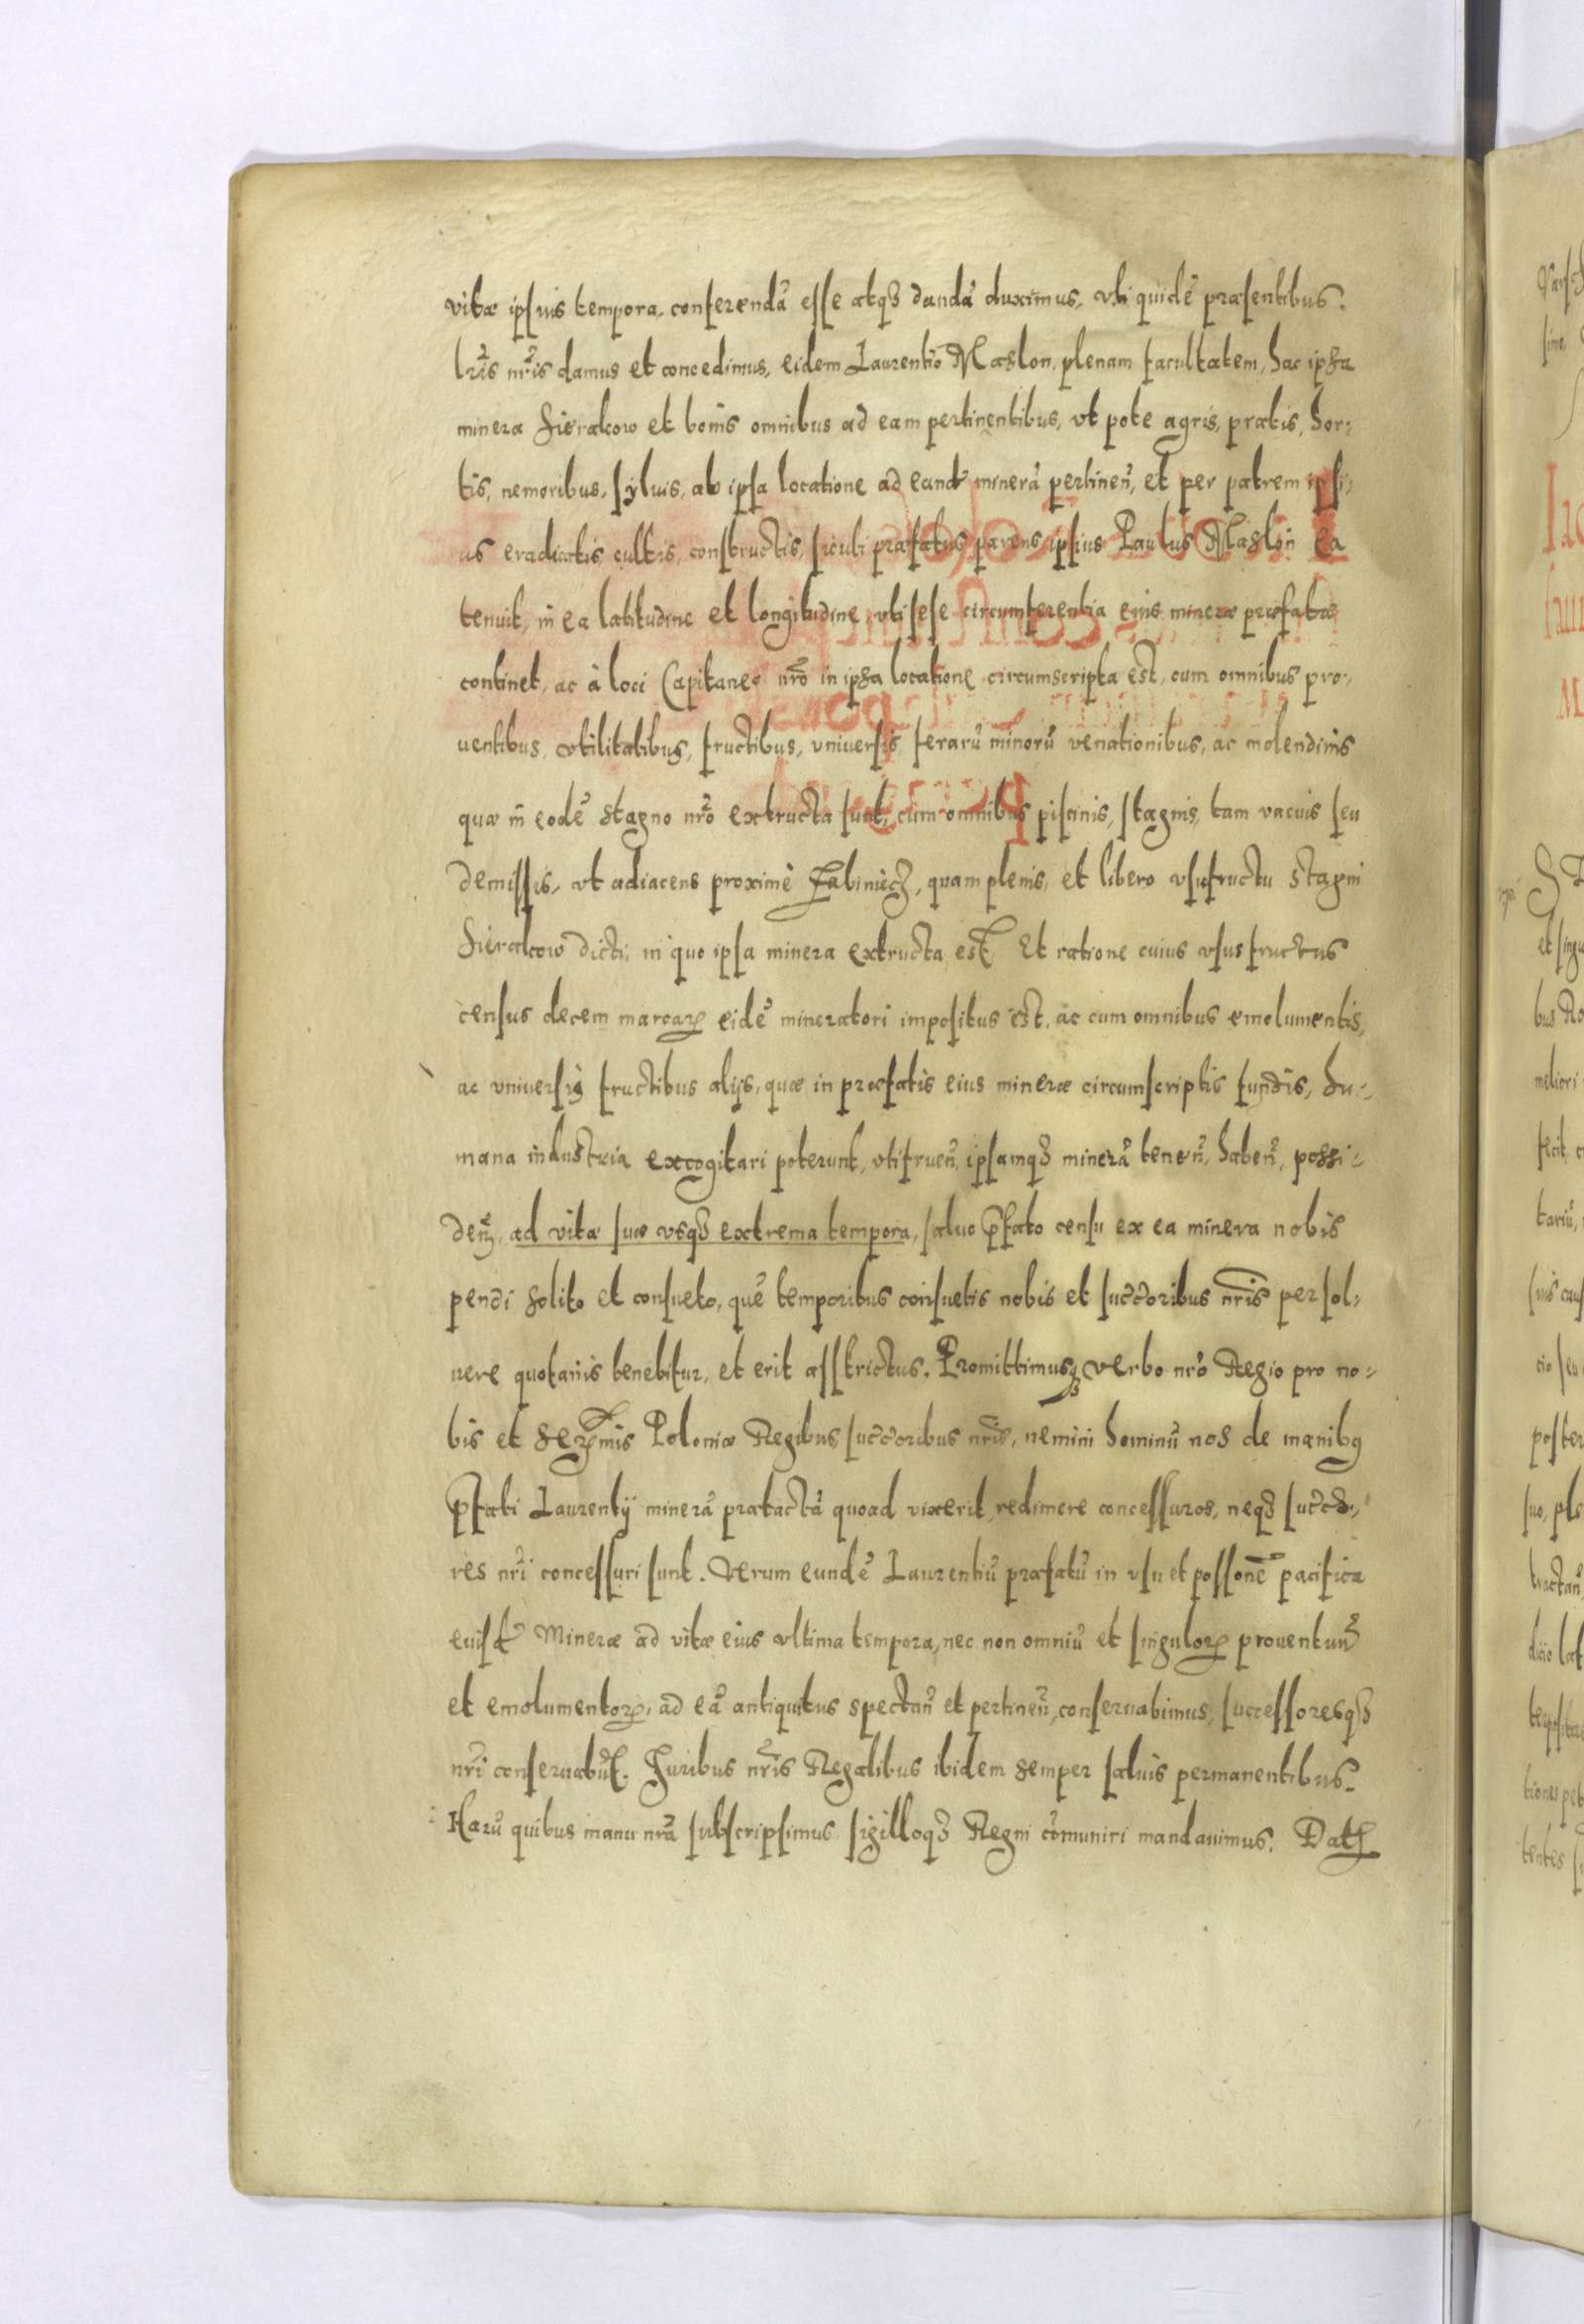 vitæ ipsius tempora, conferendã esse atqȝ dandã duximus, vti quidẽ præsentibus.
lr̃is nr̃is damus et concedimus, eidem Laurentio Maslon, plenam facultatem, hac ipsa
minera Sierakow et bonis omnibus ad eam pertinentibus, vt pote agris, pratis, hor:
tis, nemoribus, syluis, ab ipsa locatione ad eand minerã pertinen̄, et per patrem ipsi:
us eradicatis cultis, constructis, sicuti præfatus parens ipsius Paulus Maslon ea
tenuit, in ea latitudine et longitudine, vti sese circumferentia eius mineræ præfatæ
continet, ac à loci Capitaneo nr̃o in ipsa locatione circumscripta est, cum omnibus pro:
uentibus, vtilitatibus, fructibus, vniuersis ferarũ minorũ venationibus, ac molendinis
quæ in eodẽ stagno nr̃o extructa sunt, cum omnibus piscinis, stagnis, tam vacuis seu
demissis, vt adiacens proximè Fabiniecz, quam plenis, et libero vsufructu stagni
Sierakow dicti, in quo ipsa minera extructa est. Et ratione cuius vsusfructus
census decem marcarꝝ eidẽ mineratori impositus est, ac cum omnibus emolumentis,
ac vniuersis fructibus alijs, quæ in præfatis eius mineræ circumscriptis fundis, hu:
mana industria excogitari poterunt, vtifruen̄, ipsamqȝ minerã tenen̄, haben̄, possi:
den̄, ad vitæ suæ vsqȝ extrema tempora, saluo p̃fato censu ex ea minera nobis
pendi solito et consueto, quẽ temporibus consuetis nobis et succ̃oribus nr̃is persol:
uere quotanis tenebitur, et erit asstrictus. Promittimusqȝ verbo nr̃o Regio pro no:
bis et Ser̃mis Poloniæ Regibus succ̃oribus nr̃is, nemini hominũ nos de manibꝯ
p̃fati Laurentij minerã prætactã quoad vixerit, redimere concessuros, neqȝ succ̃o:
res nr̃i concessuri sunt. Verum eundẽ Laurentiũ præfatũ in vsu et possonẽ pacifica
eiusd Mineræ ad vitæ eius vltima tempora, nec non omniũ et singulorꝝ prouentuũ
et emolumentorꝝ, ad eã antiquitus spectan̄ et pertinen̄, conseruabimus, successoresqȝ
nr̃i conseruabũt. Juribus nr̃is Regalibus ibidem semper saluis permanentibus.
Harũ quibus manu nr̃a subscripsimus, sigilloqȝ Regni cõmuniri mandauimus. Datꝭ